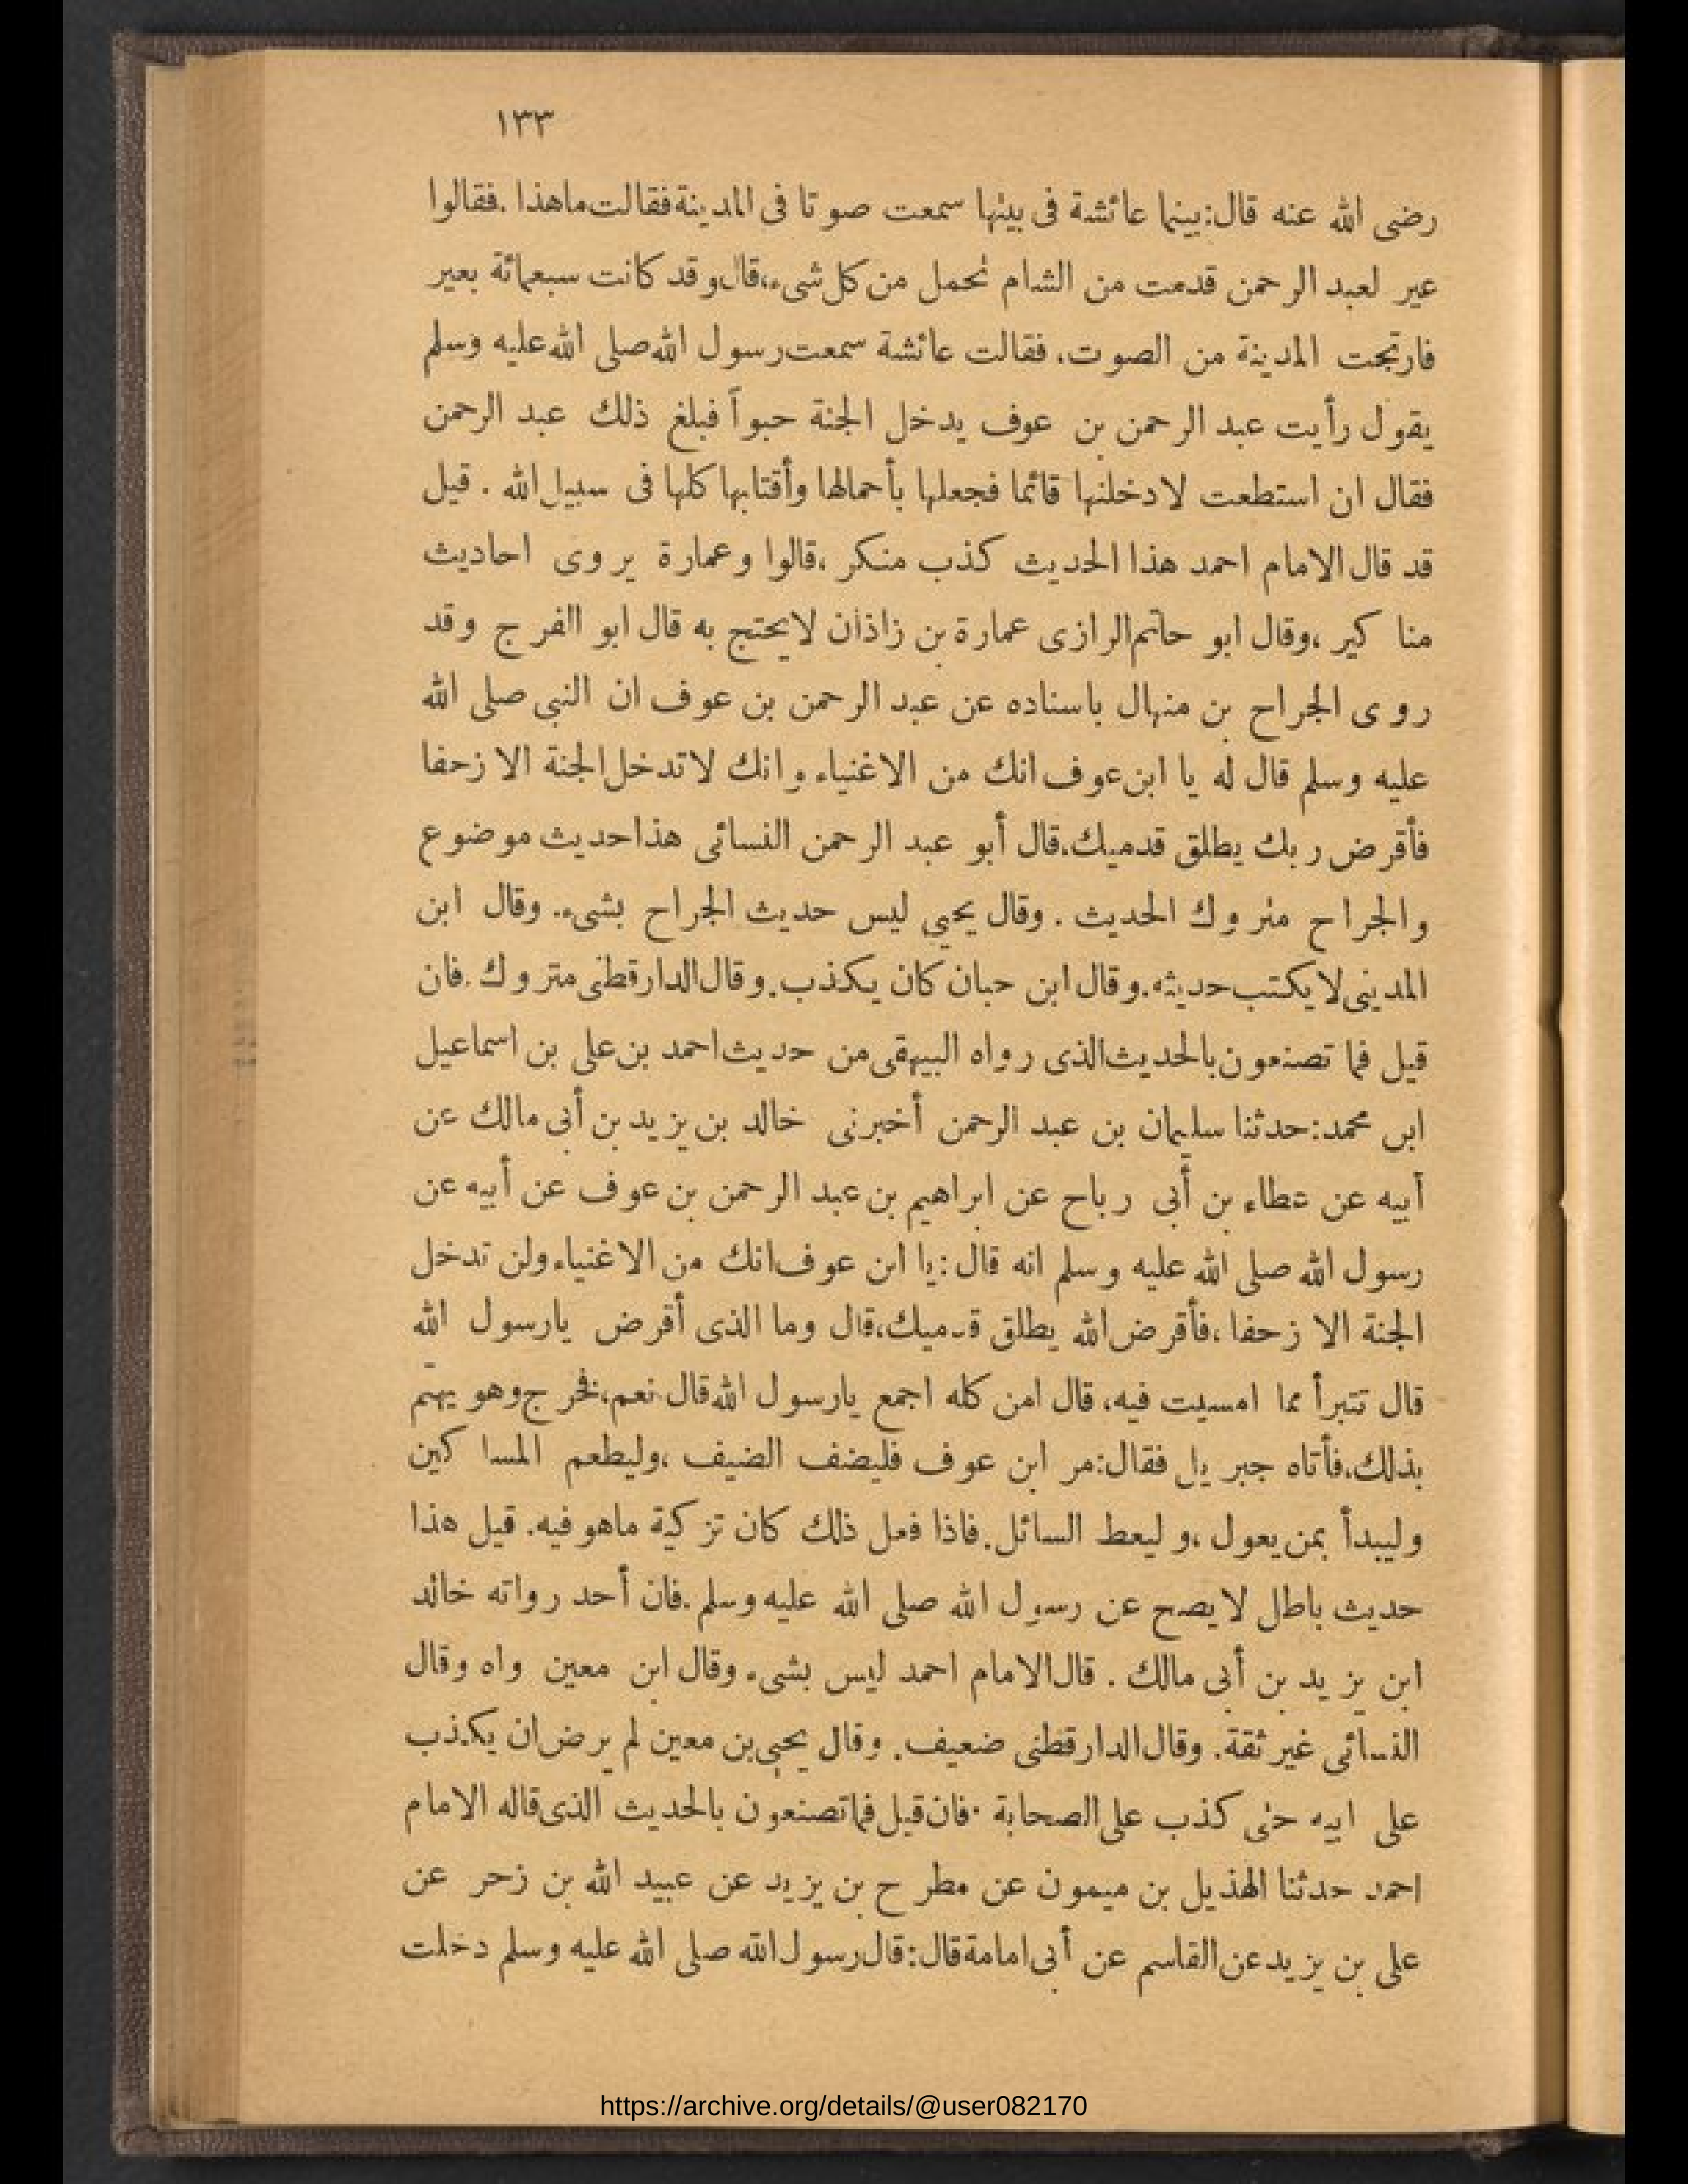 ١٣٣
رضى الله عنه قال:بينما عائشة فى بيتها سمعت صوتا فى المدينة فقالت ماهذا .فقالوا
عير لعبد الرحمن قدمت من الشام تحمل من كل شىء،قال وقد كانت سبعمائة بعير
فارتجت المدينة من الصوت، فقالت عائشة سمعت رسول الله صلى الله عليه وسلم
يقول رأيت عبد الرحمن بن عوف يدخل الجنة حبواً فبلغ ذلك عبد الرحمن
فقال ان استطعت لادخلنها قائما فجعلها بأحمالها وأقتابها كلها فى سبيل الله . قيل
قد قال الامام احمد هذا الحديث كذب منكر ،قالوا وعمارة يروى احاديث
منا كير ،وقال ابو حاتم الرازى عمارة بن زاذان لايحتج به قال ابو الفرج وقد
روى الجراح بن منهال باسناده عن عبد الرحمن بن عوف ان النبى صلى الله
عليه وسلم قال له يا ابن عوف انك من الاغنياء وانك لاتدخل الجنة الا زحفا
فأقرض ربك يطلق قدميك،قال أبو عبد الرحمن النسائى هذا حديث موضوع
والجراح متروك الحديث . وقال يحيى ليس حديث الجراح بشىء. وقال ابن
المدينى لايكتب حديثه.وقال ابن حبان كان يكذب.وقال الدارقطنى متروك .فان
قيل فما تصنعون بالحديث الذى رواه البيهقى من حديث احمد بن على بن اسماعيل
ابن محمد:حدثنا سليمان بن عبد الرحمن أخبرنى خالد بن يزيد بن أبى مالك عن
أبيه عن عطاء بن أبى رباح عن ابراهيم بن عبد الرحمن بن عوف عن أبيه عن
رسول الله صلى الله عليه وسلم انه قال :يا ابن عوف انك من الاغنياء ولن تدخل
الجنة الا زحفا ،فأقرض الله يطلق قدميك،قال وما الذى أقرض يارسول الله
قال تتبرأ مما امسيت فيه، قال امن كله اجمع يارسول الله قال نعم،فخرج وهو يهم
بذلك،فأتاه جبريل فقال:مر ابن عوف فليضف الضيف ،وليطعم المسا كين
وليبدأ بمن يعول ،وليعط السائل.فاذا فعل ذلك كان تزكية ماهو فيه. قيل هذا
حديث باطل لايصح عن رسول الله صلى الله عليه وسلم .فان أحد رواته خالد
ابن يزيد بن أبى مالك . قال الامام احمد ليس بشىء وقال ابن معين واه وقال
النسائى غير ثقة. وقال الدارقطنى ضعيف. وقال يحيى بن معين لم يرض ان يكذب
على ابيه حتى كذب على الصحابة ٠فان قيل فما تصنعون بالحديث الذى قاله الامام
احمد حدثنا الهذيل بن ميمون عن مطرح بن يزيد عن عبيد الله بن زحر عن
على بن يزيد عن القاسم عن أبى امامة قال:قال رسول الله صلى الله عليه وسلم دخلت
https://archive.org/details/@user082170